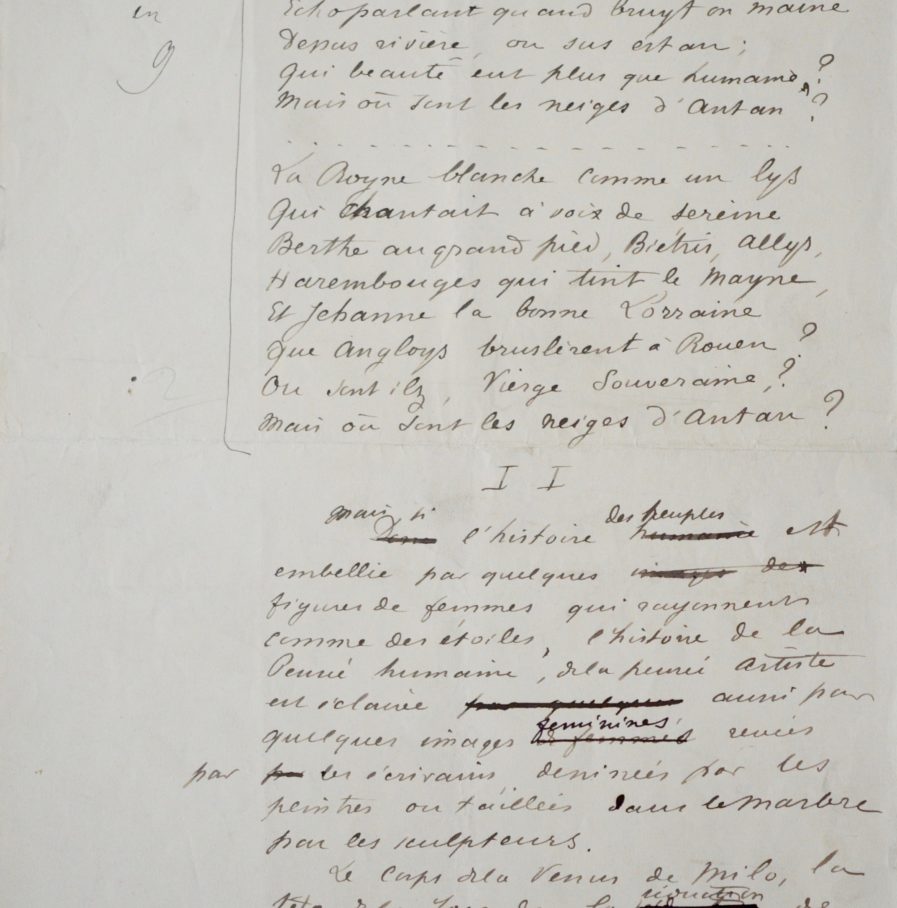 en
9
Echo parlant quand bruyt on maine
Dessus rivière, ou sus estan;
Qui beauté eut plus que humaine?
Mais où sont les neiges d'Antan?
La Royne blanche comme un lys
Qui chantait à voix de sereine
Berthe au grand pied, Biétris, Allys,
Harembouges qui tint le Mayne,
Et Jehanne la bonne Lorraine
Que Angloys bruslèrent à Rouen?
Ou sont ilz, Vierge Souveraine,?
Mais où sont les neiges d'Antan?
II
mais si des peuples
l'histoire humaine est
embellie par quelques images des
figures de femmes qui rayonnent
comme des étoiles, l'histoire de la
Pensée humaine, de la pensée artiste
est éclairée par quelques aussi par
féminines
quelques images de femmes rêvées
par par les écrivains dessinées par les
peintres ou taillées dans le marbre
par les sculpteurs.
Le Corps de la Venus de Milo, la